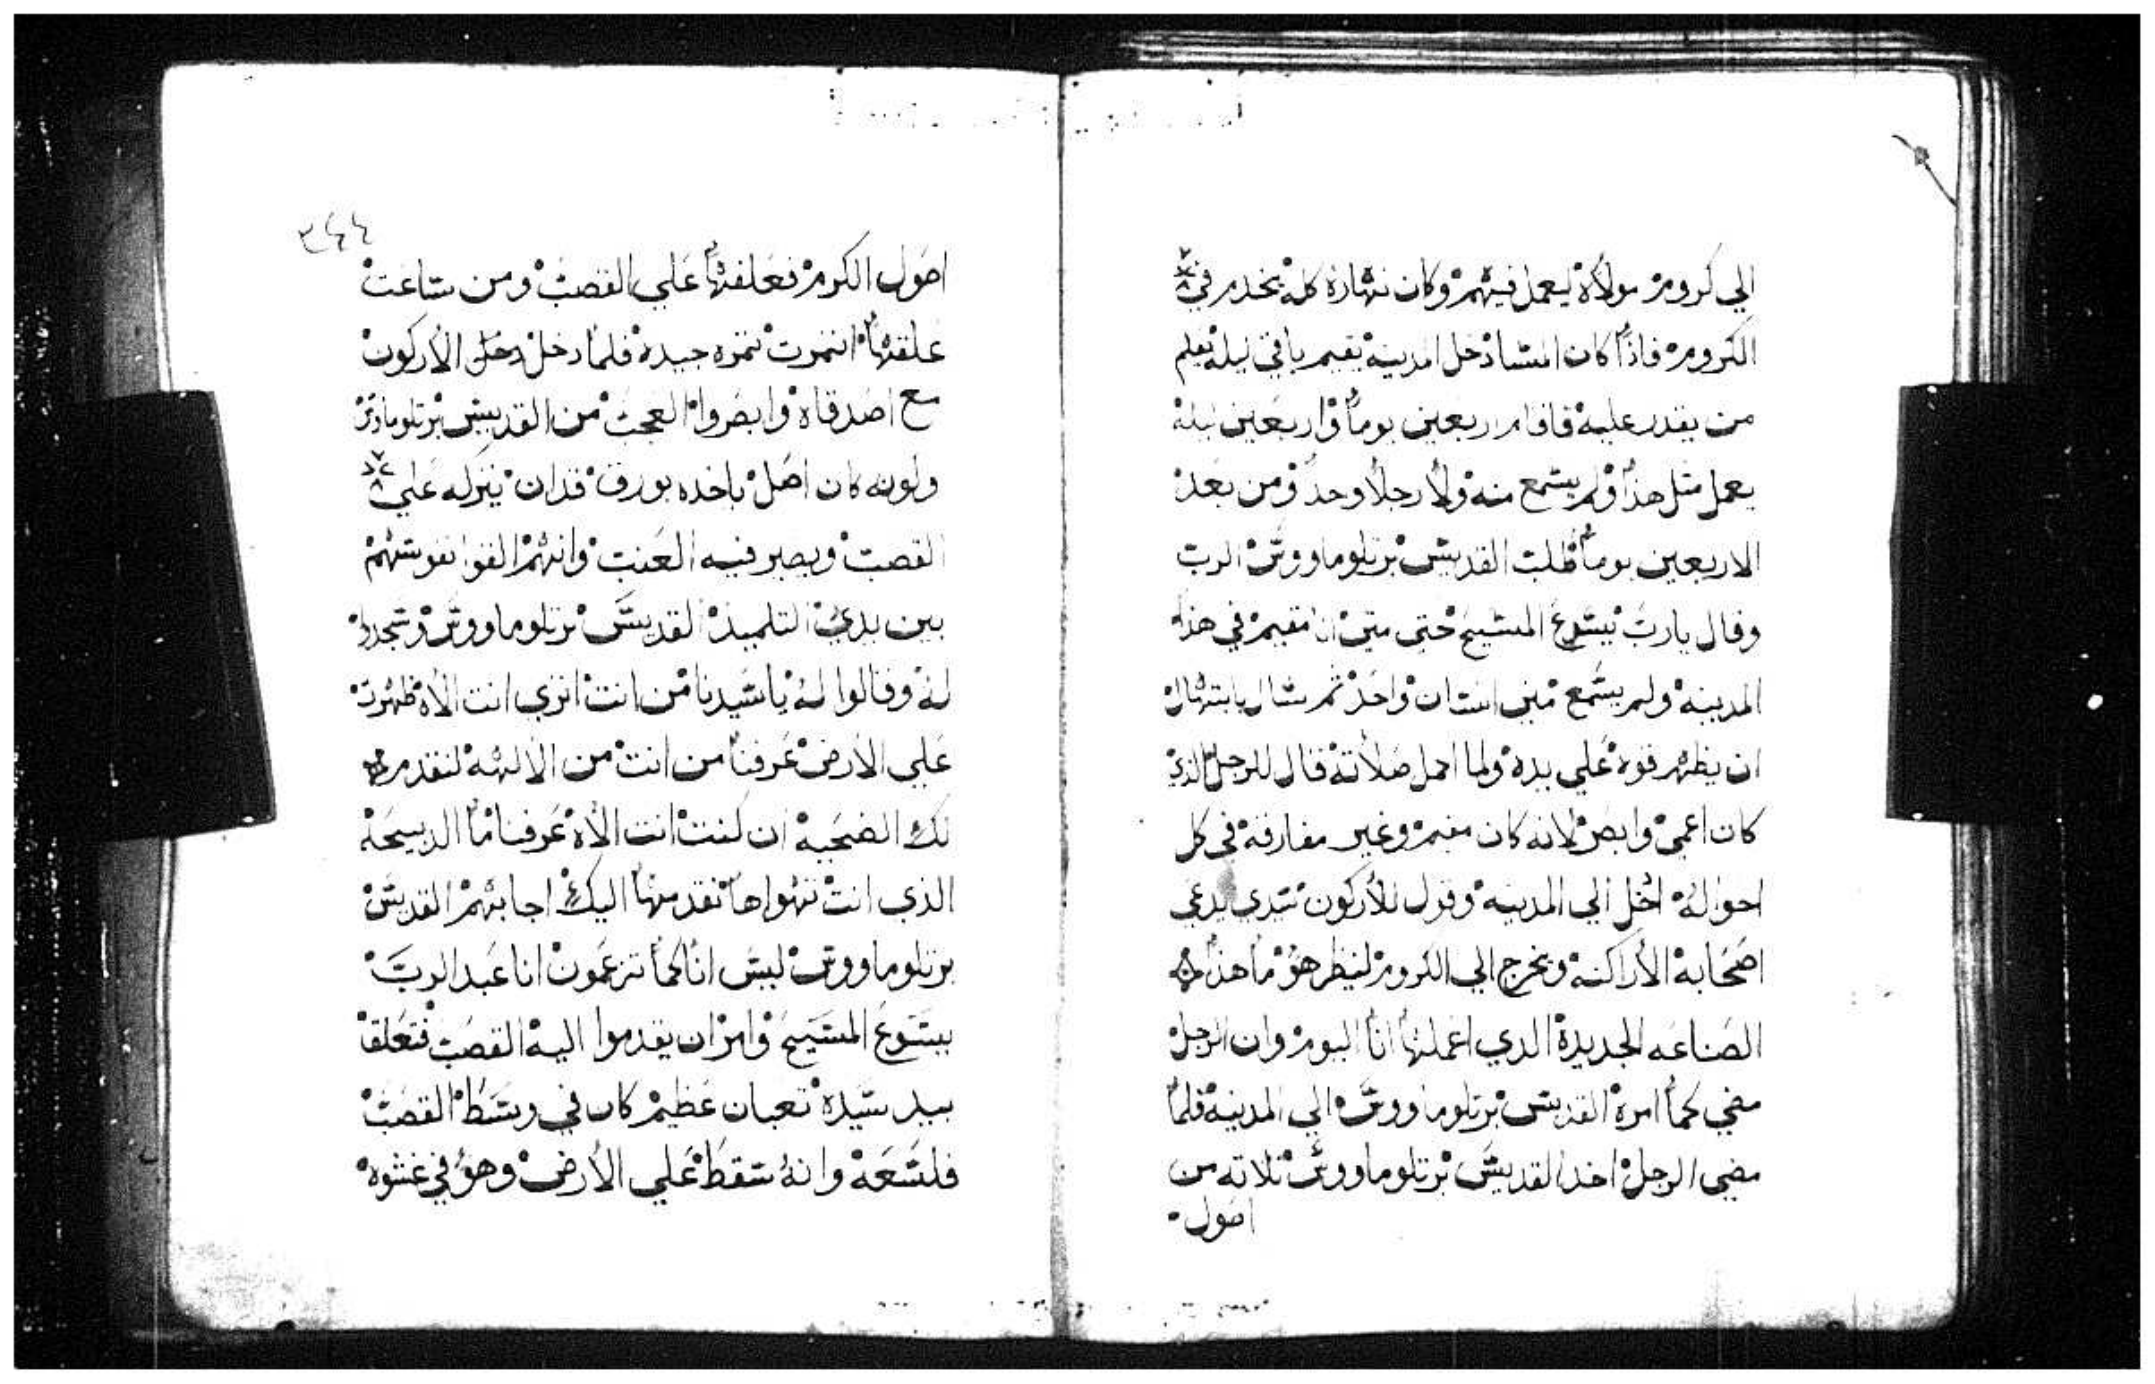 الي كروم مولاة ليعمل فيهم وكان نهارة كلة يخدم في
الكروم فاذا كان المسا دخل المدينة يقيم باقي ليلة يعلم
من يقدر عليه فاقام اربعين يوما واربعين ليلة
يعمل مثل هذا ولم يسمع منه ولا رجلا وحد ومن بعد
الاربعين يوما طلب القديس برتلوماووس الرب
وقال يارب يسوع المسيح حتى متى انا مقيم في هذة
المدينة ولم يسمع مني انسان واحد ثم سال بابتهال
ان يظهر قوة علي يدة ولما اكمل صلاتة قال للرجل الذي
كان اعمى وابصر لانه كان مقيم وغير مفارقة في كل
احوالة ادخل الي المدينة وقول للاركون سيدي يدعي
اصحابة الاراكنة ويخرج الي الكروم لينظر هو ما هذا
الصناعه الجديدة الدي اعملها انا اليوم وان الرجل
مضي كما امرة القديس برتلوماووس الي المدينة فلما
مضي الرجل اخد القديس برتلوماووس تلاته من
اصول
٣٤٤
اصول الكرم فعلقها علي القصب ومن ساعت
علقها اتمرت تمره جيدة فلما دخل الاركون
مع اصدقاة وابصروا العجب من القديس برتلوماوس
ولونه كان اصل ياخده بورق قدان ينزله علي
القصب ويصير فيه العنب وانهم القوا نفوسهم
بين يدي التلميذ القديس برتلوماووس وسجدوا
لة وقالوا لة ياسيدنا من انت اتري انت الاة ظهرت
علي الارض عرفنا من انت من الالهة لنقدم
لك الضحية ان كنت انت الاة عرفنا ما الدبيحة
الذي انت تهواها نقدمها اليك اجابهم القديس
برتلوماووس ليس انا كما تزعمون انا عبد الرب
يسوع المسيح وامر ان يقدموا الية القصب فتعلق
بيد سيدة تعبان عظيم كان في وسط القصب
فلسعة وانة سقط علي الارض وهو في غشوة